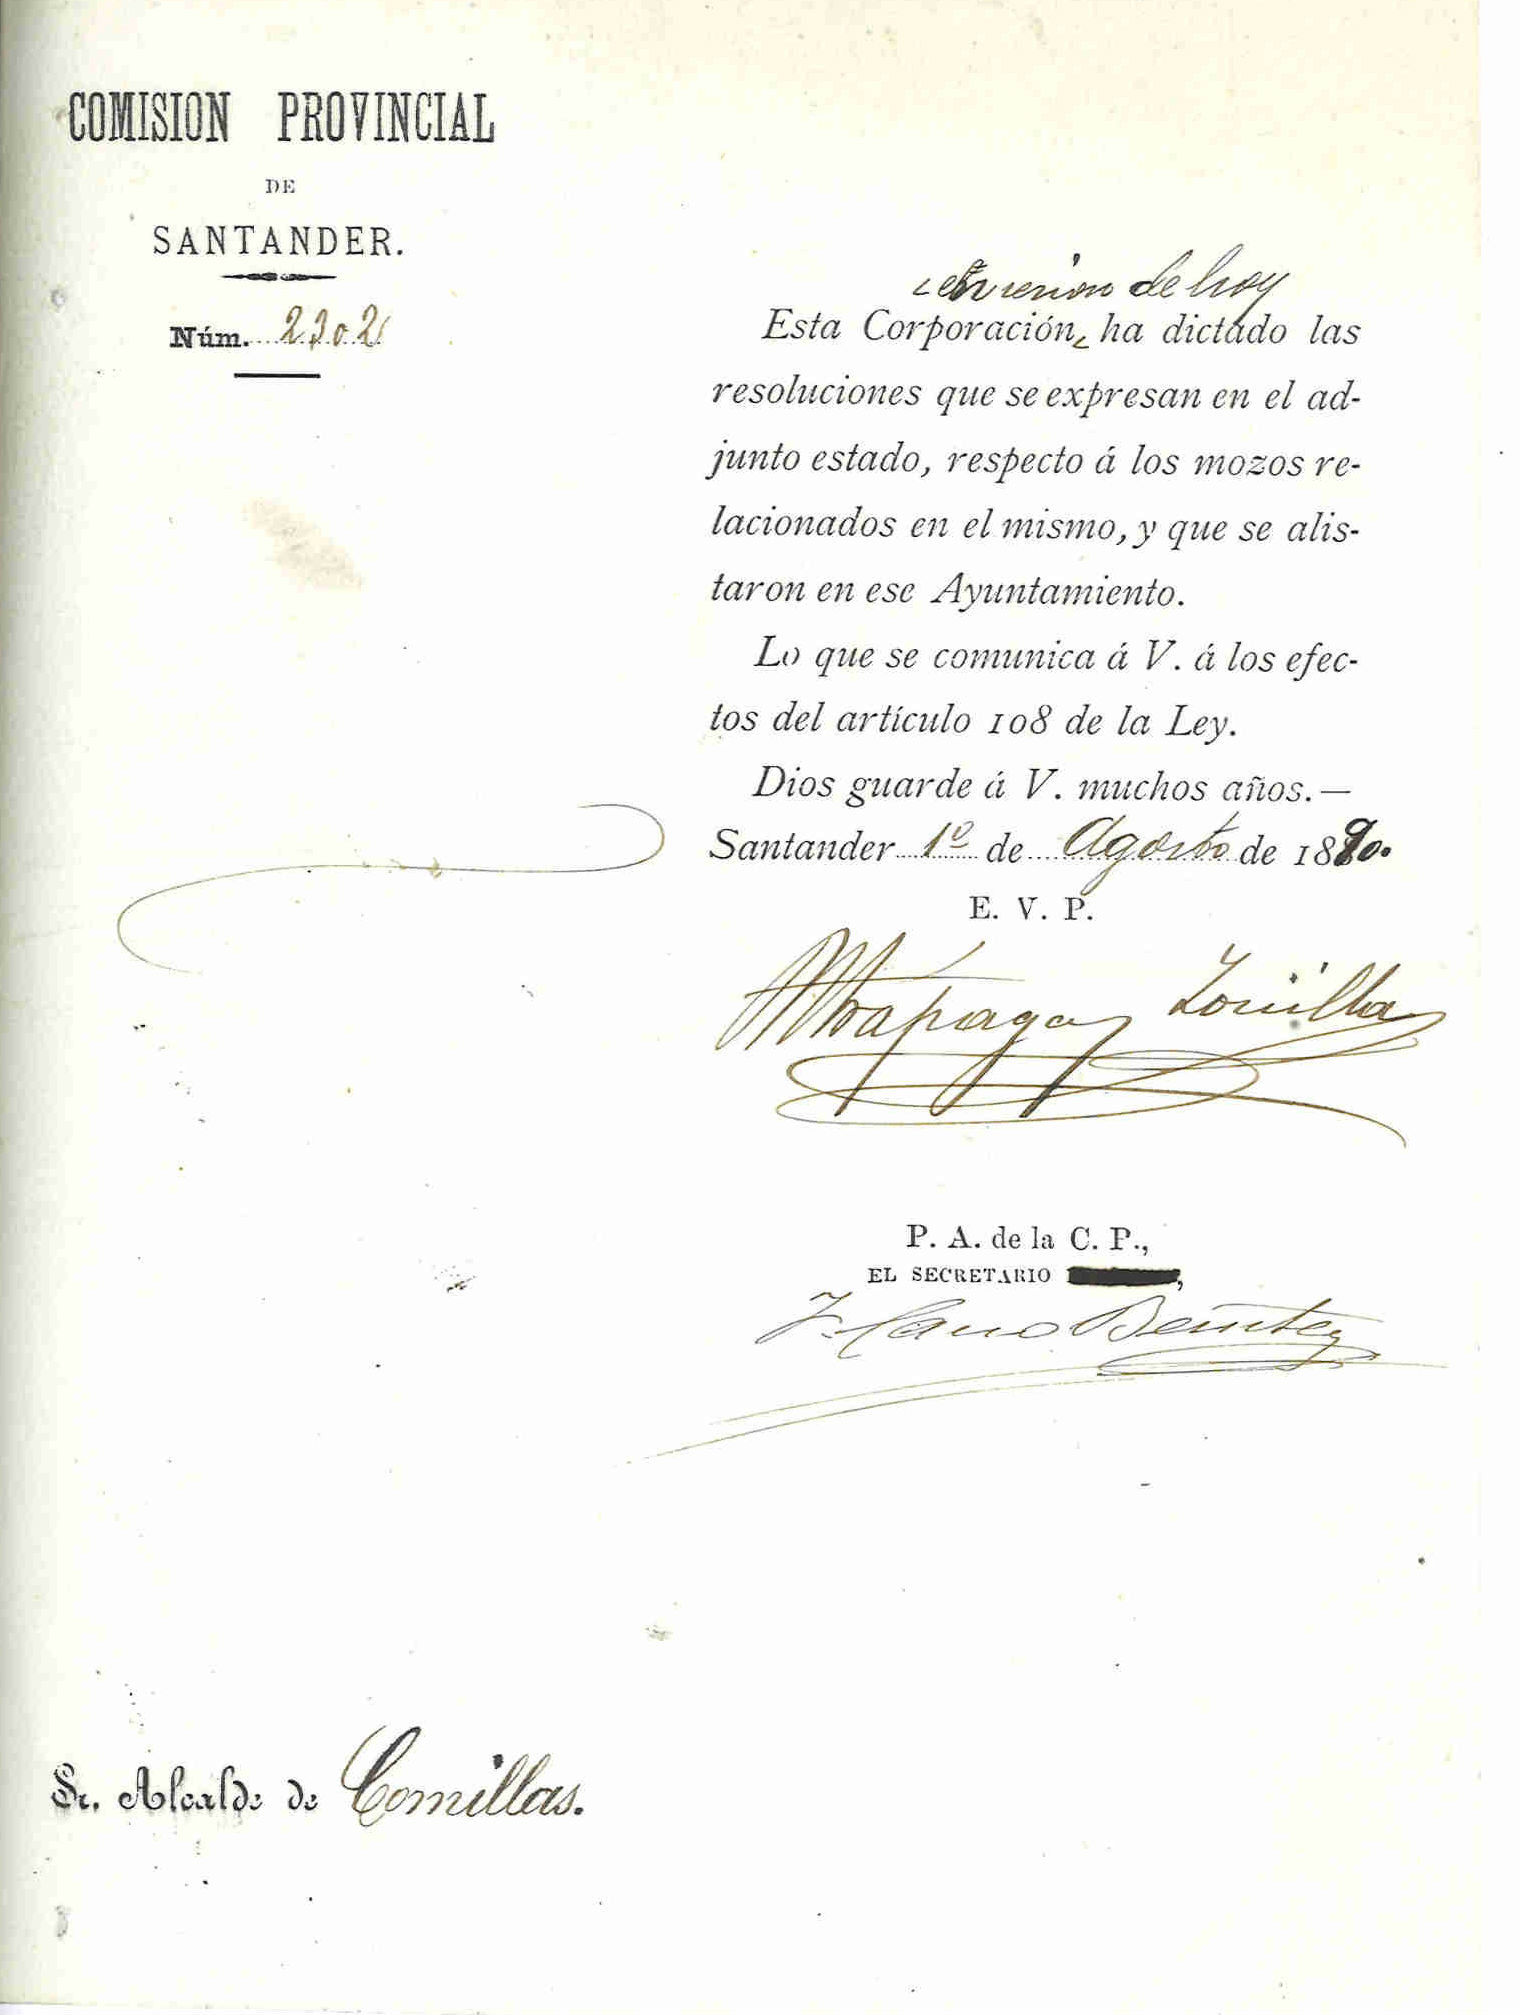 COMISION PROVINCIAL
DE
SANTANDER.
Núm. 2302
en sesion de hoy
Esta Corporación, ha dictado las
resoluciones que se expresan en el ad-
junto estado, respecto á los mozos re-
lacionados en el mismo, y que se alis-
taron en ese Ayuntamiento.
Lo que se comunica á V. á los efec-
tos del artículo 108 de la Ley.
Dios guarde á V. muchos años.—
Santander 1º de Agosto de 1890.
E. V. P.
Zorrilla
P. A. de la C. P.,
EL SECRETARIO
Cano Benitez
Sr. Alcalde de Comillas.